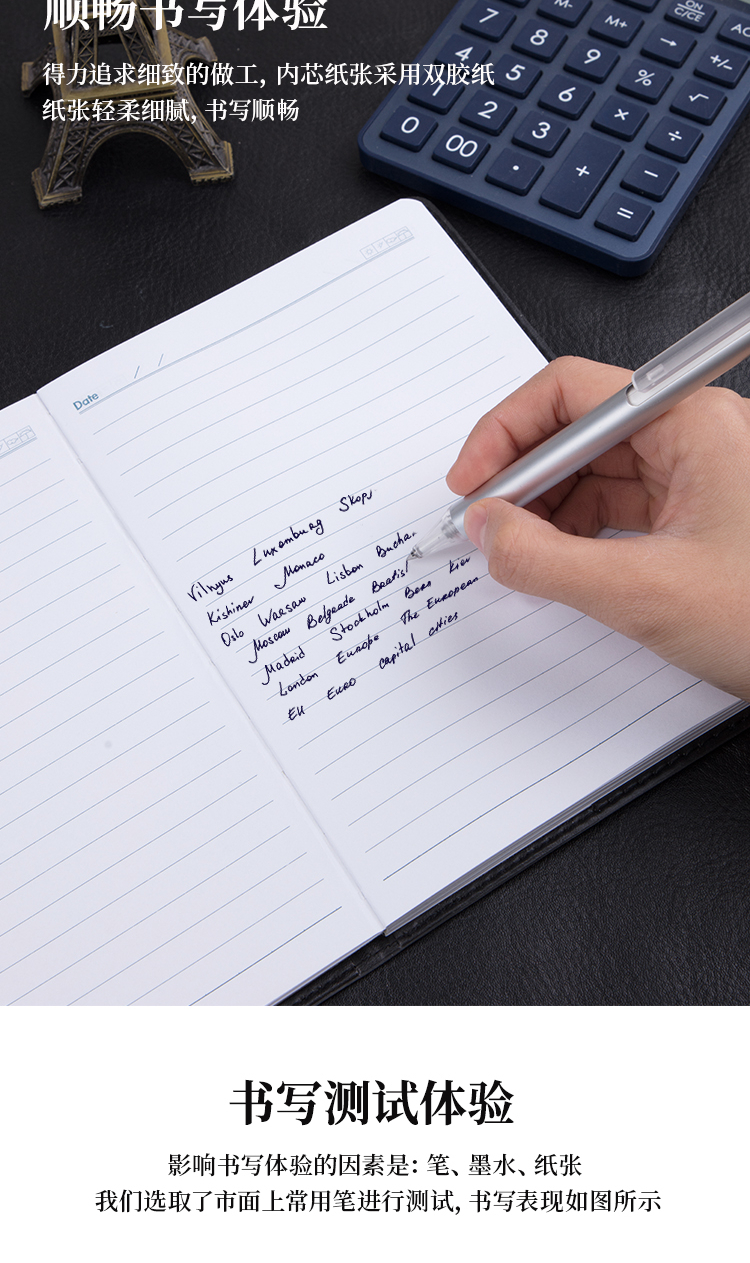 顺畅书写体验
得力追求细致的做工, 内芯纸张采用双胶纸
纸张轻柔细腻, 书写顺畅
M- ON C/CE AC
7 8 9 M+ → +/-
4 5 6 % √
1 2 3 × ÷
0 00 · + − =
Date / /
Vilnyus Luxemburg Skop
Kishinev Monaco
Oslo Warsaw Lisbon Bucha
Moscow Belgrade Bratisl
Madrid Stockholm Bern Kiev
London Europe The European
EU Euro capital cities
书写测试体验
影响书写体验的因素是: 笔、墨水、纸张
我们选取了市面上常用笔进行测试, 书写表现如图所示